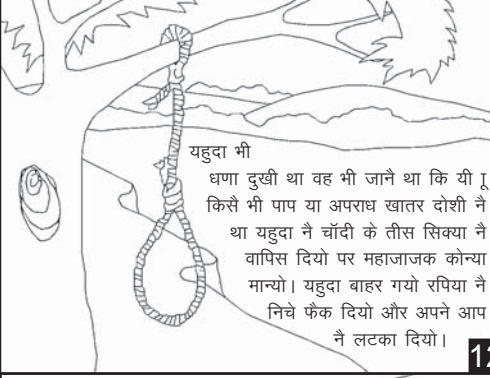 यहुदा भी
धणा दुखी था वह भी जानै था कि यी ू
किसै भी पाप या अपराध खातर दोशी नै
था यहुदा नै चॉदी के तीस सिक्या नै
वापिस दियो पर महाजाजक कोन्या
मान्यो। यहुदा बाहर गयो रपिया नै
निचे फैक दियो और अपने आप
नै लटका दियो।
12